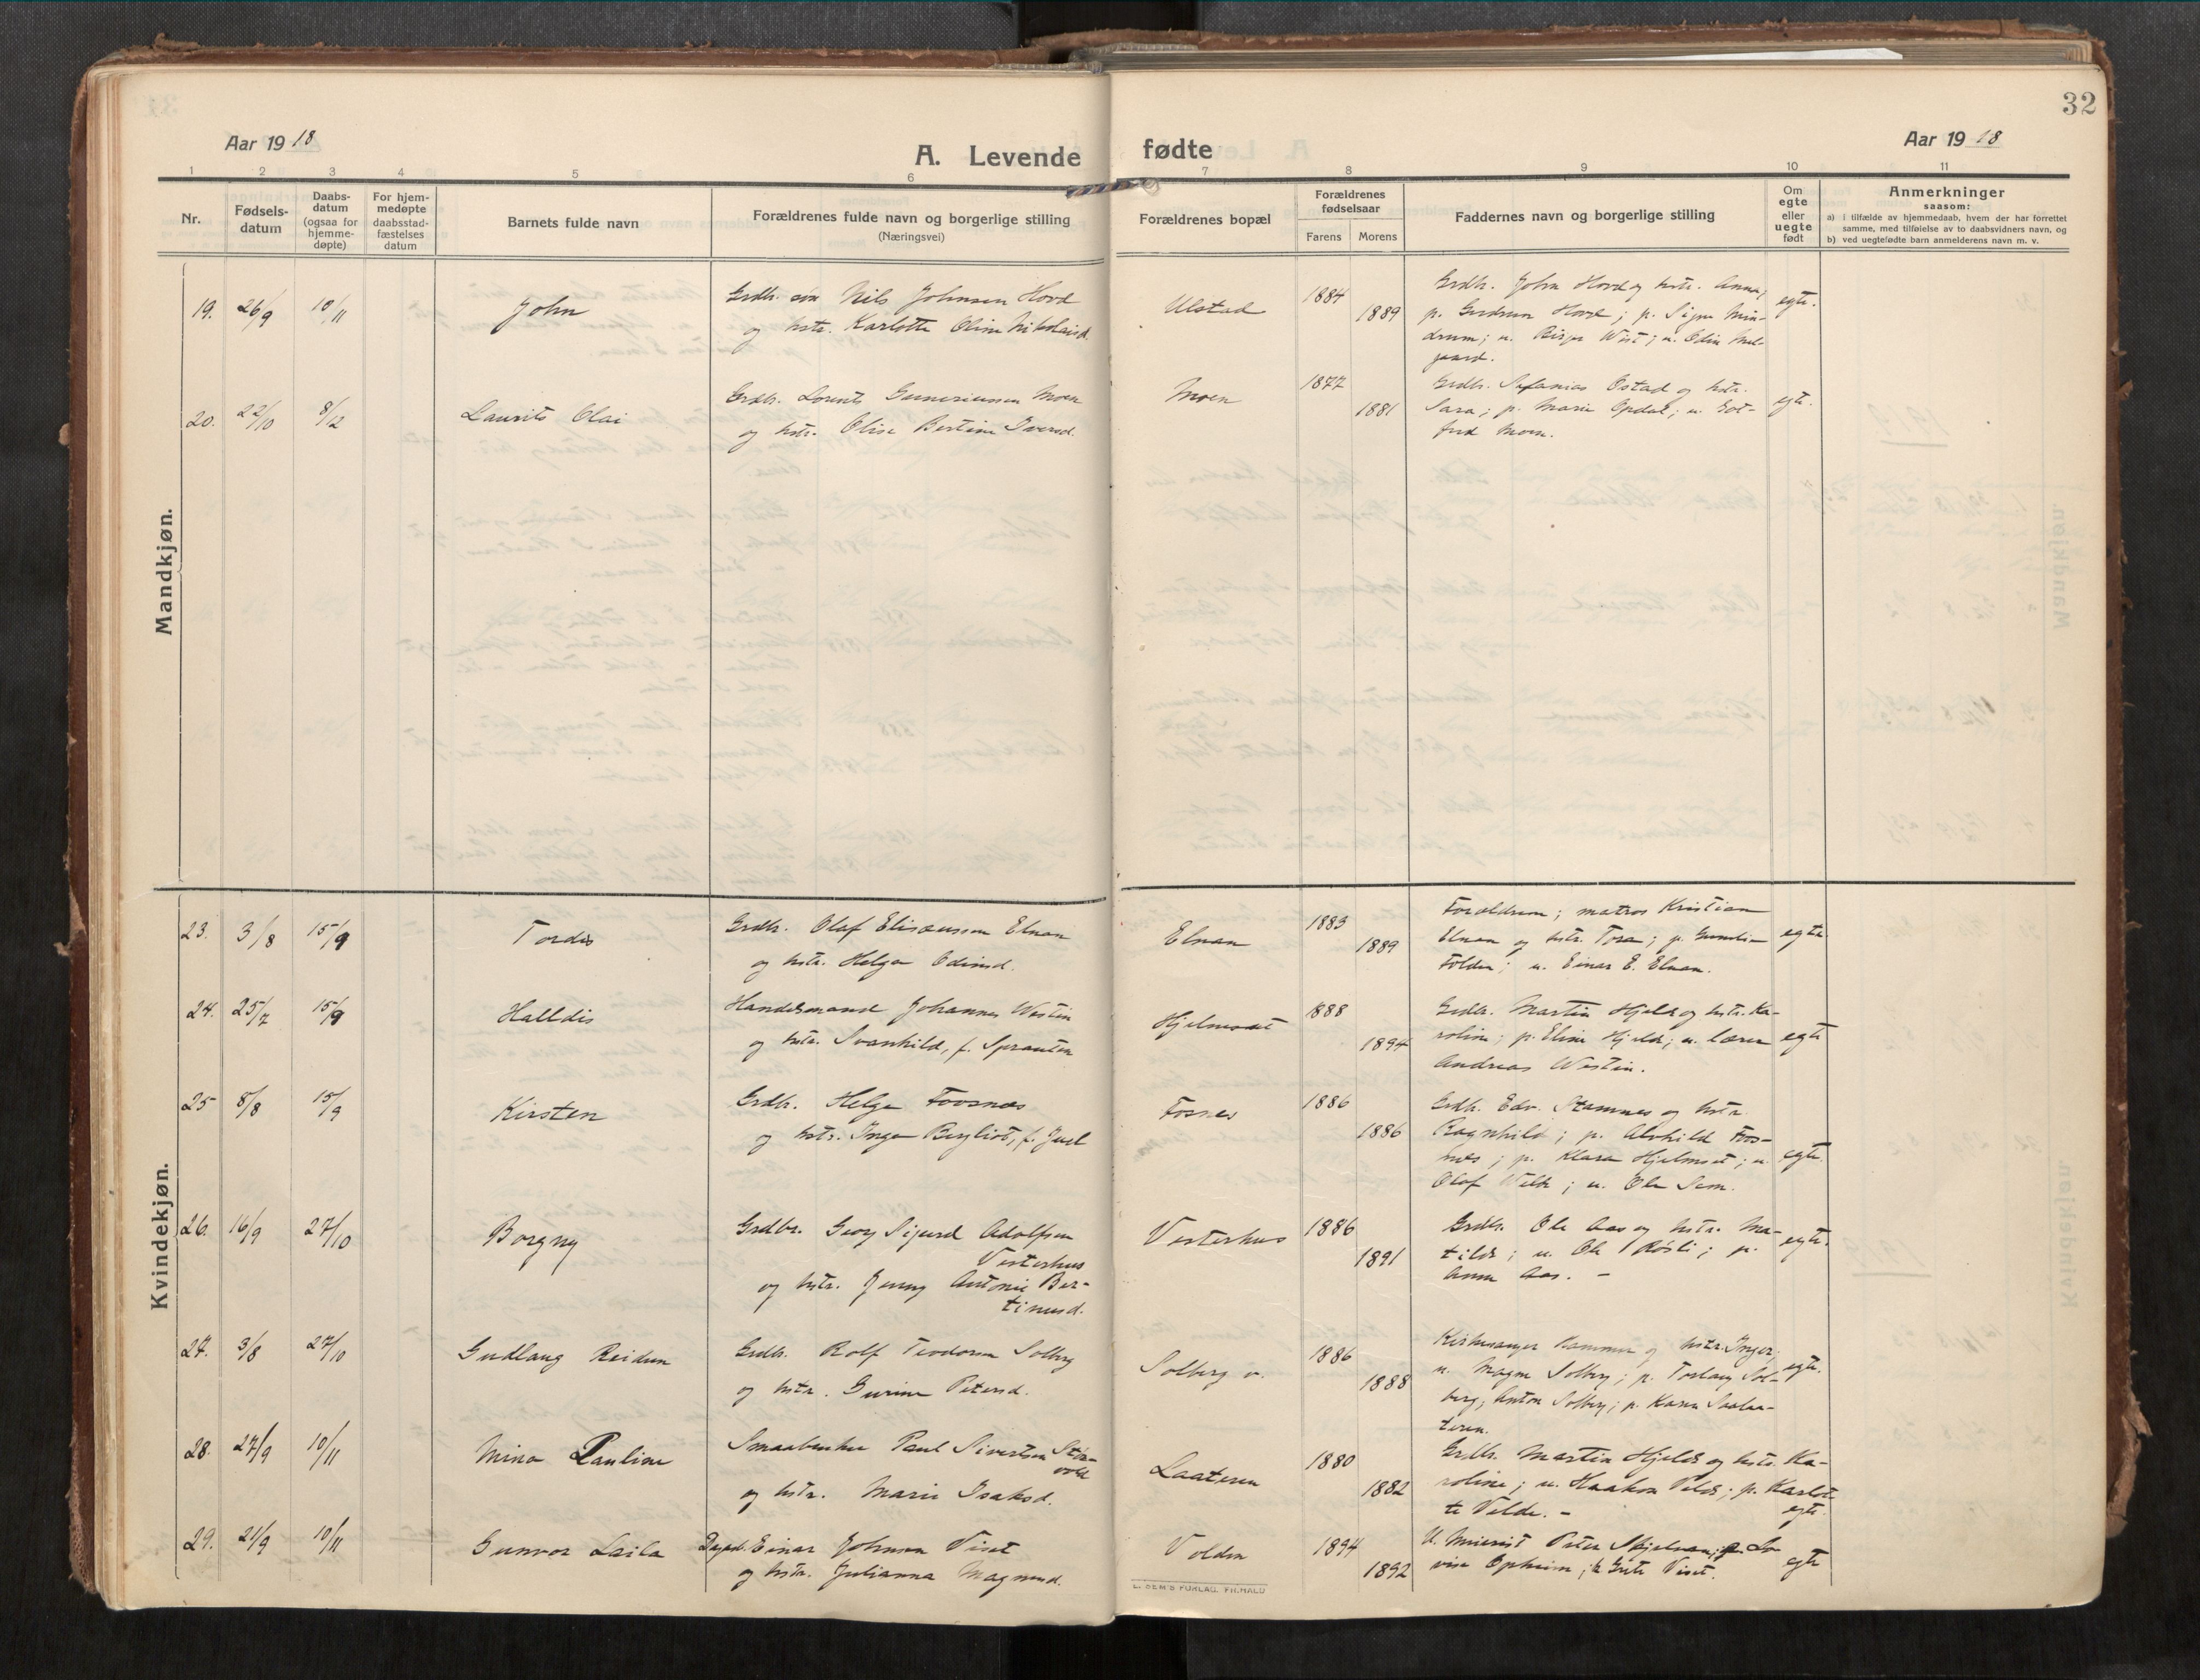 32
Aar 1918
A. Levende fødte
Aar 1918
1 2 3 4 5 6 7 8 9 10 11
Nr.
Fødsels-
datum
Daabs-
datum
(ogsaa for
hjemme-
døpte)
For hjem-
medøpte
daabsstad-
fæstelses
datum
Barnets fulde navn
Forældrenes fulde navn og borgerlige stilling
(Næringsvei)
Forældrenes bopæl
Forældrenes
fødselsaar
Farens Morens
Faddernes navn og borgerlige stilling
Om
egte
eller
uegte
født
Anmerkninger
saasom:
a) i tilfælde av hjemmedaab, hvem der har forrettet
samme, med tilføielse av to daabsvidners navn, og
b) ved uegtefødte barn anmelderens navn m. v.
Mandkjøn.
19. 26/9 10/11 John
Grdbr. søn Nils Johnsen Hovd
og hstr. Karlotte Oline Nikolaisd.
Ulstad 1884 1889
Grdbr. John Hovd og hstr. Anna;
p. Gudrun Hovd; p. Signe Min-
drum; u. Birger West; u. Odin
egte.
20. 22/10 8/12 Laurits Olai
Grdbr. Lorents Gunneriussen Moen
og hstr. Olise Bertine Iversd.
Moen 1877 1881
Grdbr. Sefanias Ostad og hstr.
Sara; p. Marie Opdal; u. Got-
fred Moen.
egte.
Kvindekjøn.
23. 3/8 15/9 Tordis
Grdbr. Olaf Elisæussen Elnan
og hstr. Helga Odinsd.
Elnan 1883 1889
Forældrene; matros Kristian
Elnan og hstr. Tora; p.
Folden; u. Einar E. Elnan.
egte.
24. 25/7 15/9 Halldis
Handelsmand Johannes Westin
og hstr. Svanhild, f. Sprauten
Hjelmset 1888 1894
Grdbr. Martin Hjeld og hstr. Ka-
roline; p. Eline Hjeld; u. lærer
Andreas Westin.
egte
25 8/8 15/9 Kirsten
Grdbr. Helge Foosnæs
og hstr. Inga Bergliot, f. Juel
Fosnes 1886 1886
Grdbr. Edv. Stamnes og hstr.
Ragnhild; p. Alvhild Foos-
næs; p. Klara Hjelmset; u.
Olaf Welde; u. Ole Sem.
egte.
26. 16/9 27/10 Borgny
Grdbr. Georg Sigurd Adolfsen
Vesterhus
og hstr. Jenny Antonie Ber-
tinusd.
Vesterhus 1886 1891
Grdbr. Ole Aas og hstr. Ma-
tilde; u. Ole Røsli; p.
Anna Aas. -
egte.
27. 3/8 27/10 Gudlaug Reidun
Grdbr. Rolf Teodorsen Solberg
og hstr. Gurine Petersd.
Solberg v. 1886 1888
Kirkesanger Hammer og hstr. Inger;
u. Magne Solberg; p. Torlaug Sol-
berg; Anton Solberg; p. Karen
egte.
28. 27/9 10/11 Mina Pauline
Smaabruker Paul Sivertsen Stor-
vold
og hstr. Marie Isaksd.
Laateren 1880 1882
Grdbr. Martin Hjeld og hstr. Ka-
roline; u. Haakon Velde; p. Karlot-
te Velde. -
egte.
29. 21/9 10/11 Gunvor Laila
Dagarb. Einar Johnsen Viset
og hstr. Julianna Magnusd.
Volden 1894 1892
U. Meierist Peter Skjelvan; p. Lo-
vise Opheim; p. Grete Viset.
egte
E. SEM'S FORLAG, FR.HALD